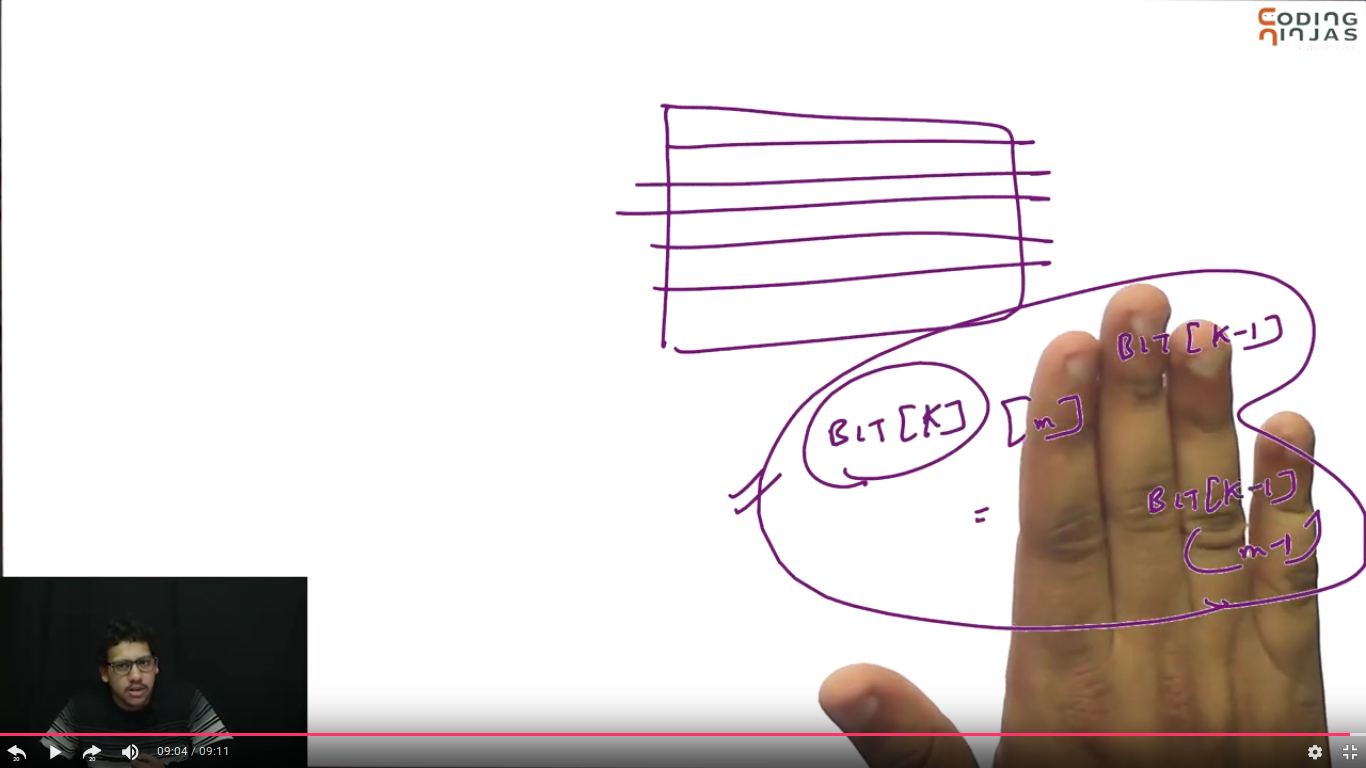 CODING
NINJAS
BIT[K-1]
BIT[K] [m]
=
BIT[K-1]
(m-1)
09:04 / 09:11
20
20